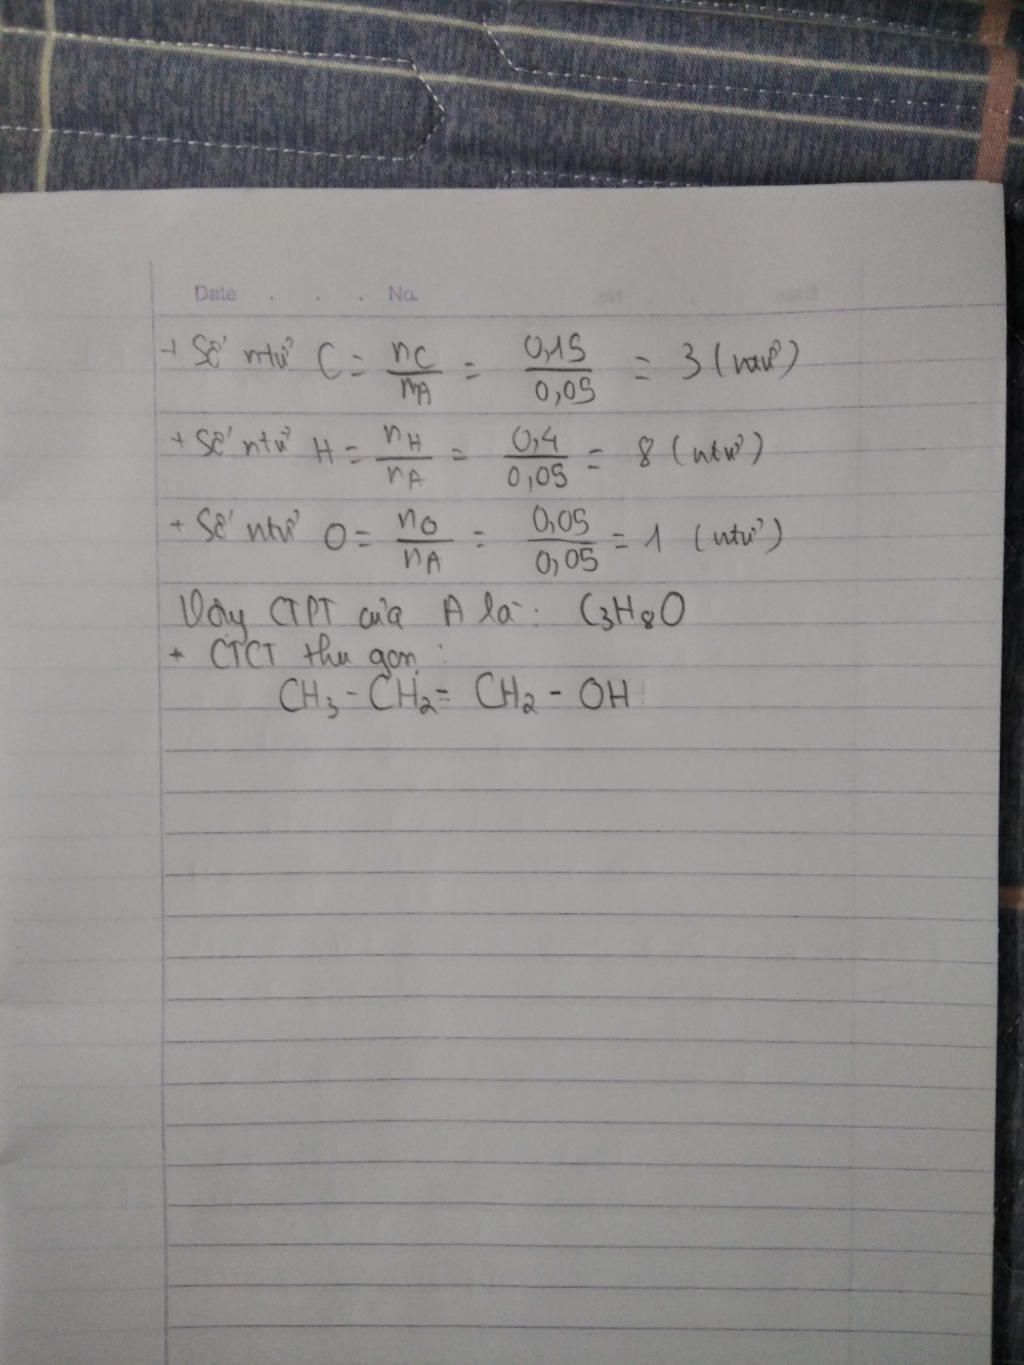 Date . . . No.
+ Số ntử C = nC/nA = 0,15/0,05 = 3 (ntử)
+ Số ntử H = nH/nA = 0,4/0,05 = 8 (ntử)
+ Số ntử O = nO/nA = 0,05/0,05 = 1 (ntử)
Vậy CTPT của A là: C3H8O
+ CTCT thu gọn:
CH3 - CH2 = CH2 - OH